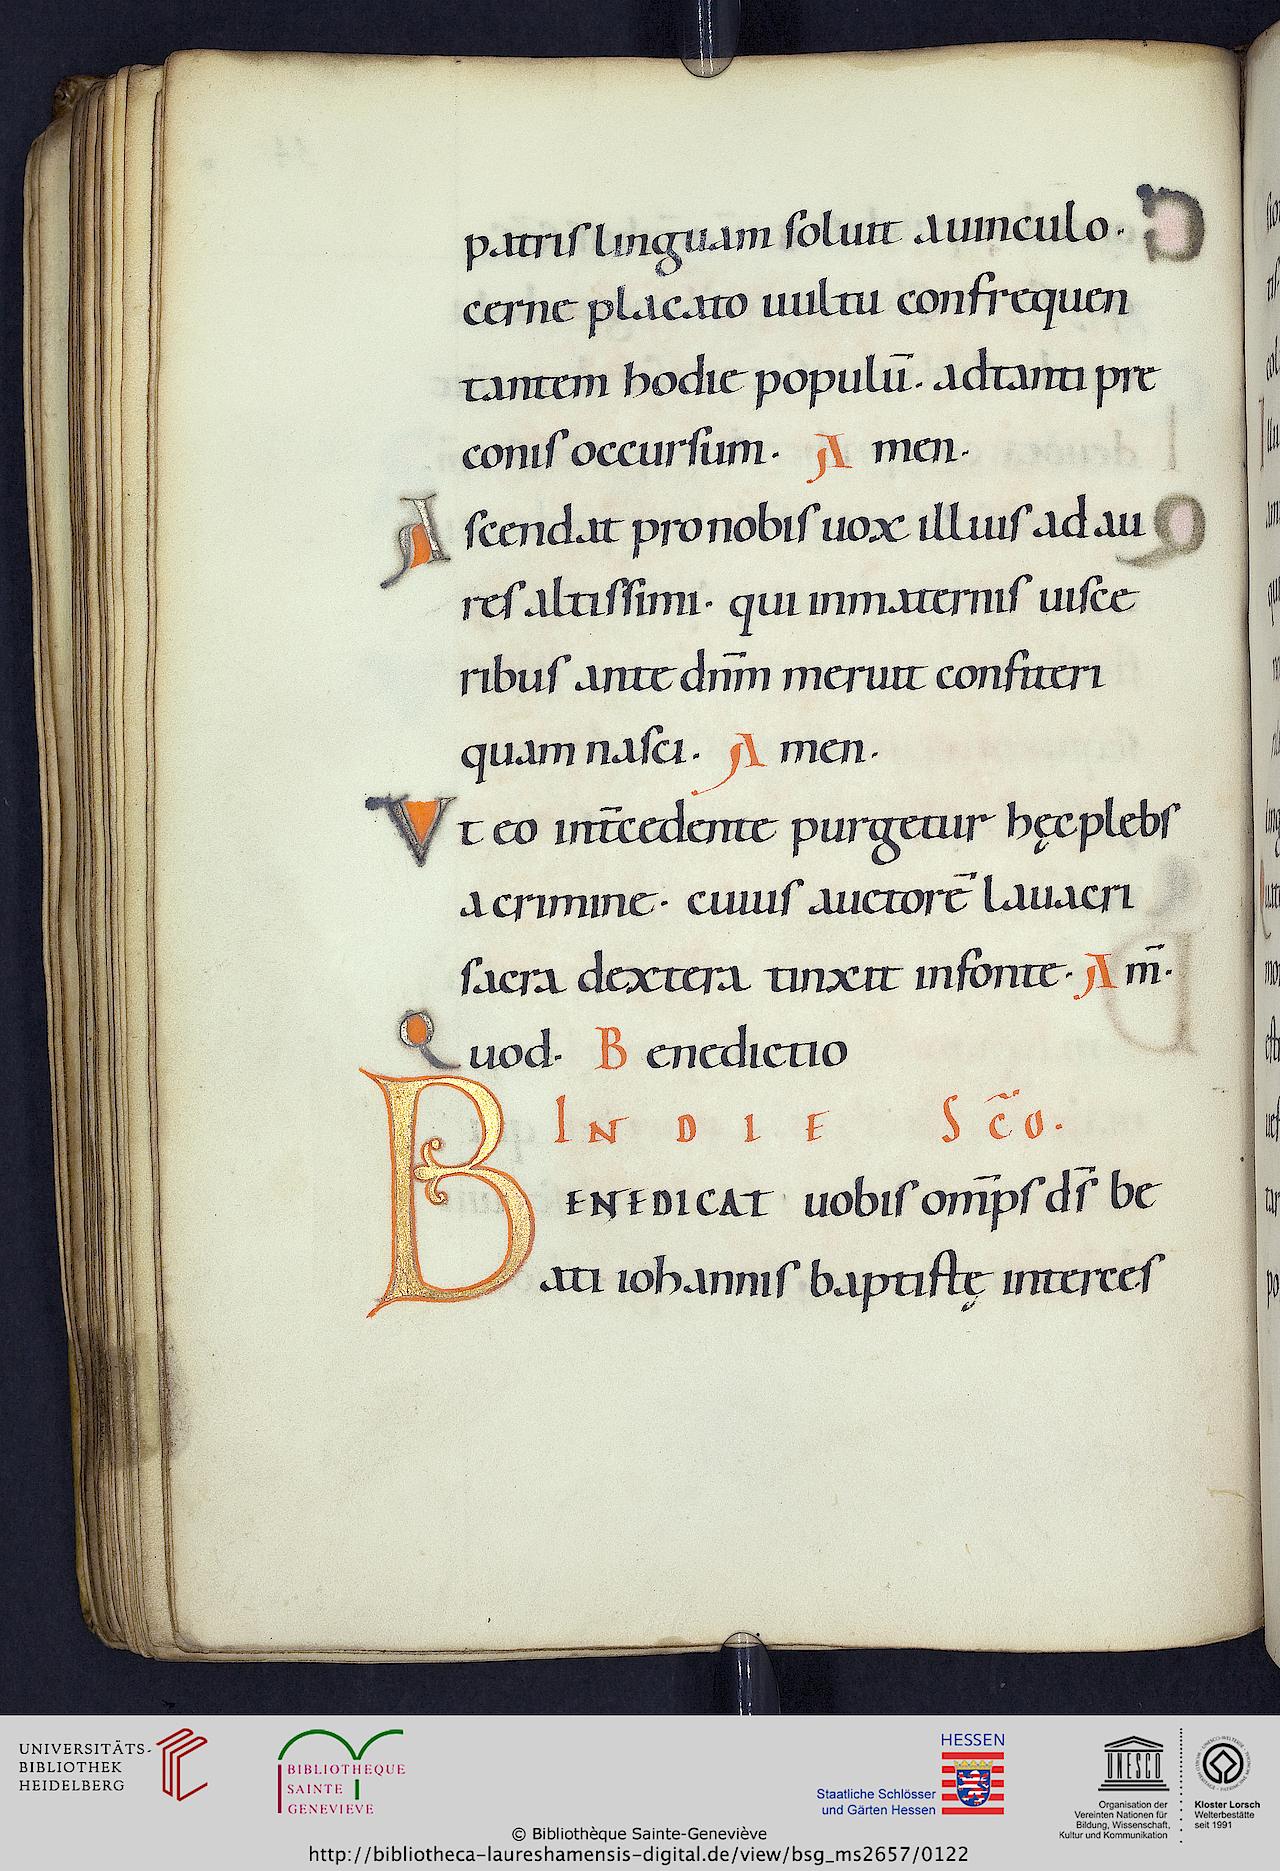 patris linguam soluit auinculo·
cerne placato uultu confrequen
tantem hodie populū· adtanti pre
conis occursum· Amen·
Ascendat pro nobis uox illius ad au
res altissimi· qui inmaternis uisce
ribus ante dn̄m meruit confiteri
quam nasci· Amen·
Vt eo int̄cedente purgetur hęc plebs
a crimine· cuius auctorē lauacri
sacra dextera tinxit infonte· Am̄·
Quod· Benedictio
IN DIE SC̄O·
BENEDICAT uobis om̄ps ds̄ be
ati iohannis baptistę interces
UNIVERSITÄTS-
BIBLIOTHEK
HEIDELBERG
BIBLIOTHEQUE
SAINTE
GENEVIEVE
HESSEN
Staatliche Schlösser
und Gärten Hessen
UNESCO
Organisation der
Vereinten Nationen für
Bildung, Wissenschaft,
Kultur und Kommunikation
Kloster Lorsch
Welterbestätte
seit 1991
© Bibliothèque Sainte-Geneviève
http://bibliotheca-laureshamensis-digital.de/view/bsg_ms2657/0122